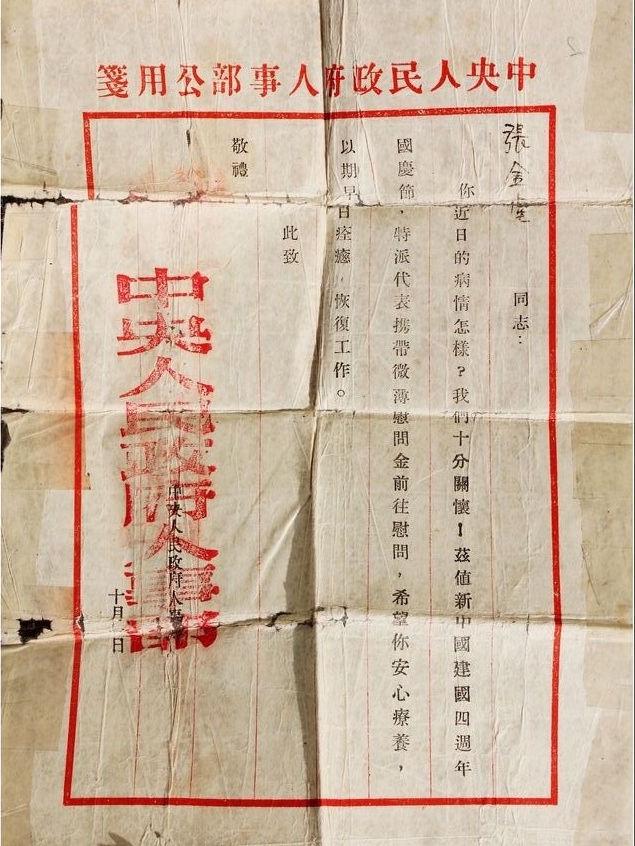 中央人民政府人事部公用箋
張金
同志：
你近日的病情怎樣？我們十分關懷！茲值新中國建國四週年
國慶節，特派代表携帶微薄慰問金前往慰問，希望你安心療養，
以期早日痊癒，恢復工作。
此致
敬禮
中央人民政府人事部
中央人民政府人事
十月 日